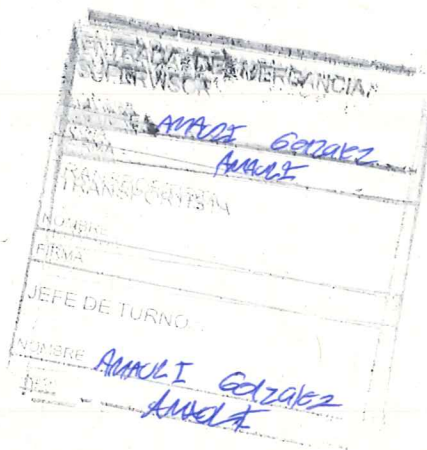 ENTRADA DE MERCANCIA
SUPERVISOR
AMAURI Gonzalez
AMAURI
TRANSPORTISTA
NOMBRE
FIRMA
JEFE DE TURNO
NOMBRE AMAURI Gonzalez
AMAURI